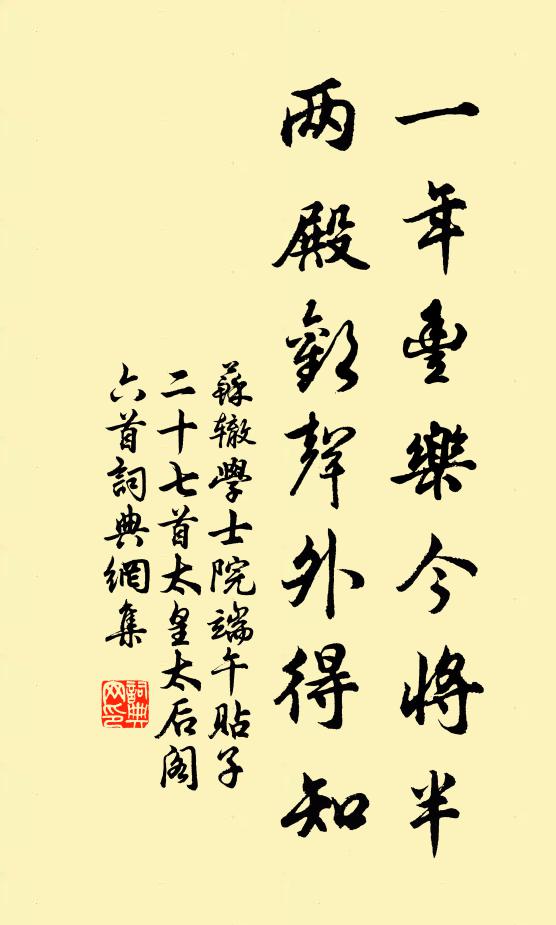 一年豐樂今將半
两殿歡聲外得知
蘇辙學士院端午贴子
二十七首太皇太后阁
六首詞典網集
詞典网印